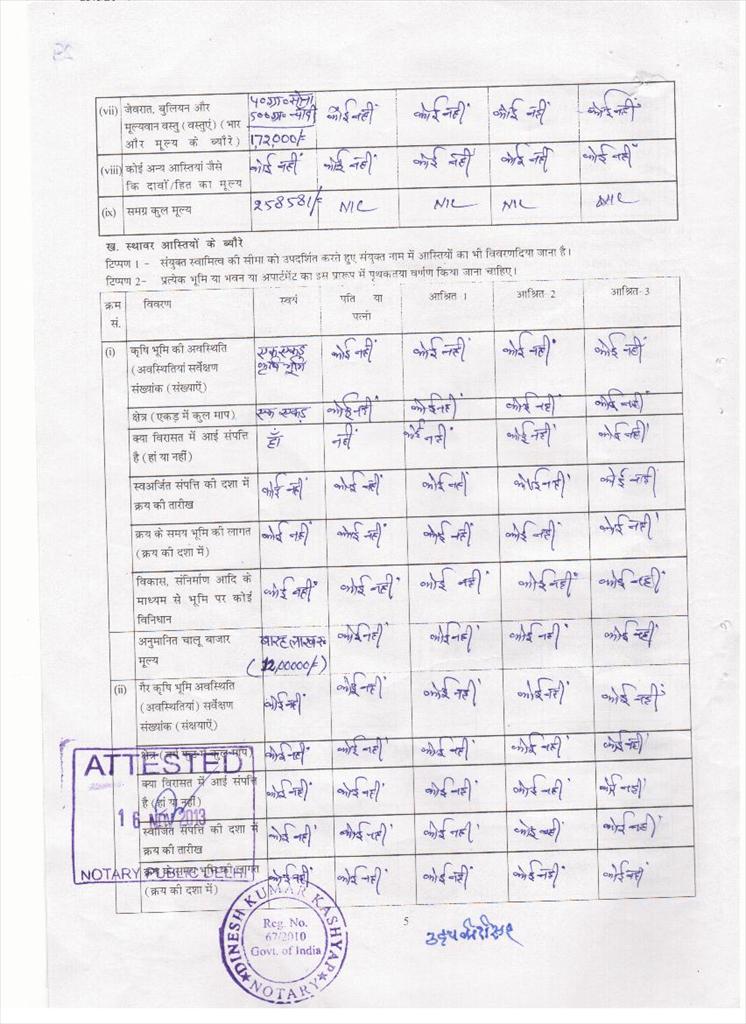 (vii) जेवरात, बुलियन और मूल्यवान वस्तु (वस्तुएं) (भार और मूल्य के ब्यौरे) ५०ग्रा०सोना ५००ग्रा० चांदी 1,72,000/- कोई नहीं कोई नहीं कोई नहीं कोई नहीं
(viii) कोई अन्य आस्तियां जैसे कि दावों/हित का मूल्य कोई नहीं कोई नहीं कोई नहीं कोई नहीं कोई नहीं
(ix) समग्र कुल मूल्य 258581/- NIL NIL NIL NIL
ख. स्थावर आस्तियों के ब्यौरे
टिप्पण 1 - संयुक्त स्वामित्व की सीमा को उपदर्शित करते हुए संयुक्त नाम में आस्तियों का भी विवरणदिया जाना है।
टिप्पण 2- प्रत्येक भूमि या भवन या अपार्टमेंट का इस प्रारूप में पृथकतया वर्णण किया जाना चाहिए।
क्रम सं. विवरण स्वयं पति या पत्नी आश्रित 1 आश्रित-2 आश्रित-3
(i) कृषि भूमि की अवस्थिति (अवस्थितियां सर्वेक्षण संख्यांक (संख्याऐं) एक एकड़ कृषि भूमि कोई नहीं कोई नहीं कोई नहीं कोई नहीं
क्षेत्र (एकड़ में कुल माप) एक एकड़ कोई नहीं कोई नहीं कोई नहीं कोई नहीं
क्या विरासत में आई संपत्ति है (हां या नहीं) हाँ नहीं कोई नहीं कोई नहीं कोई नहीं
स्वअर्जित संपत्ति की दशा में क्रय की तारीख कोई नहीं कोई नहीं कोई नहीं कोई नहीं कोई नहीं
क्रय के समय भूमि की लागत (क्रय की दशा में) कोई नहीं कोई नहीं कोई नहीं कोई नहीं कोई नहीं
विकास, संनिर्माण आदि के माध्यम से भूमि पर कोई विनिधान कोई नहीं कोई नहीं कोई नहीं कोई नहीं कोई नहीं
अनुमानित चालू बाजार मूल्य बारह लाख रु० (12,00000/-) कोई नहीं कोई नहीं कोई नहीं कोई नहीं
(ii) गैर कृषि भूमि अवस्थिति (अवस्थितियां) सर्वेक्षण संख्यांक (संक्षयाऐं) कोई नहीं कोई नहीं कोई नहीं कोई नहीं कोई नहीं
क्षेत्र कुल माप) कोई नहीं कोई नहीं कोई नहीं कोई नहीं कोई नहीं
क्या विरासत में आई संपत्ति है (हां या नहीं) कोई नहीं कोई नहीं कोई नहीं कोई नहीं कोई नहीं
स्वार्जित संपत्ति की दशा में क्रय की तारीख कोई नहीं कोई नहीं कोई नहीं कोई नहीं कोई नहीं
क्रय के समय भूमि की लागत (क्रय की दशा में) कोई नहीं कोई नहीं कोई नहीं कोई नहीं कोई नहीं
ATTESTED
16 NOV 2013
NOTARY PUBLIC DELHI
DINESH KUMAR KASHYAP
Reg. No.
67/2010
Govt. of India
NOTARY
5